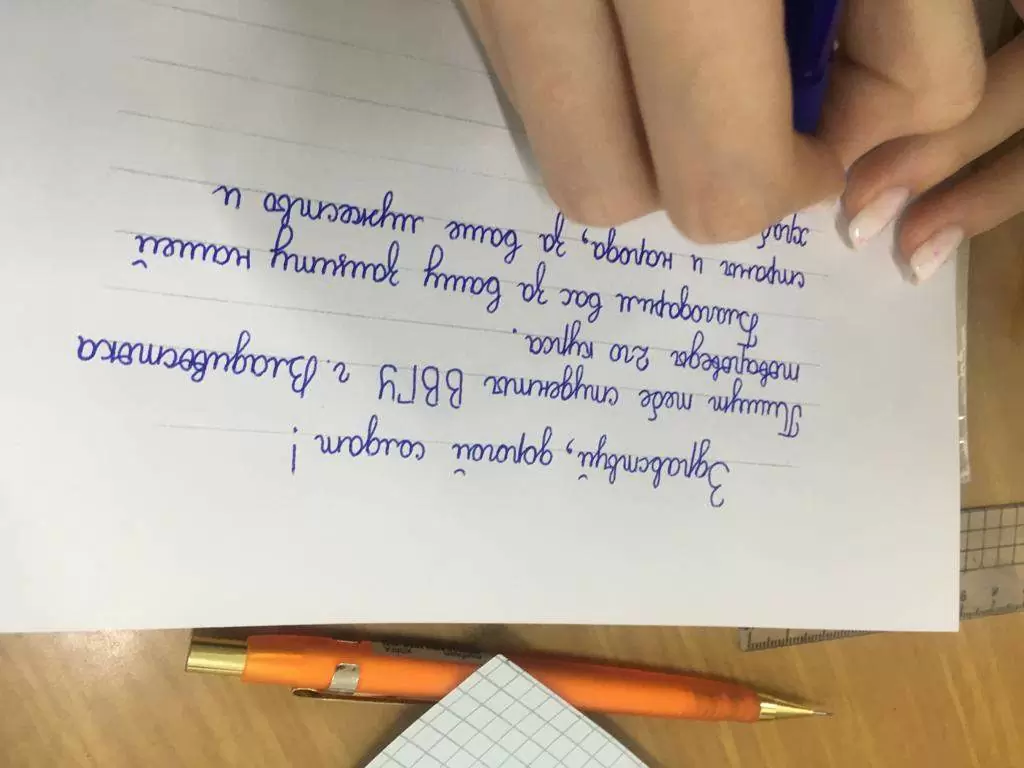 Здравствуй, дорогой солдат!
Пишут тебе студенты ВВГУ г. Владивостока
товароведа 2го курса.
Благодарим вас за вашу защиту нашей
страны и народа, за ваше мужество и
храб